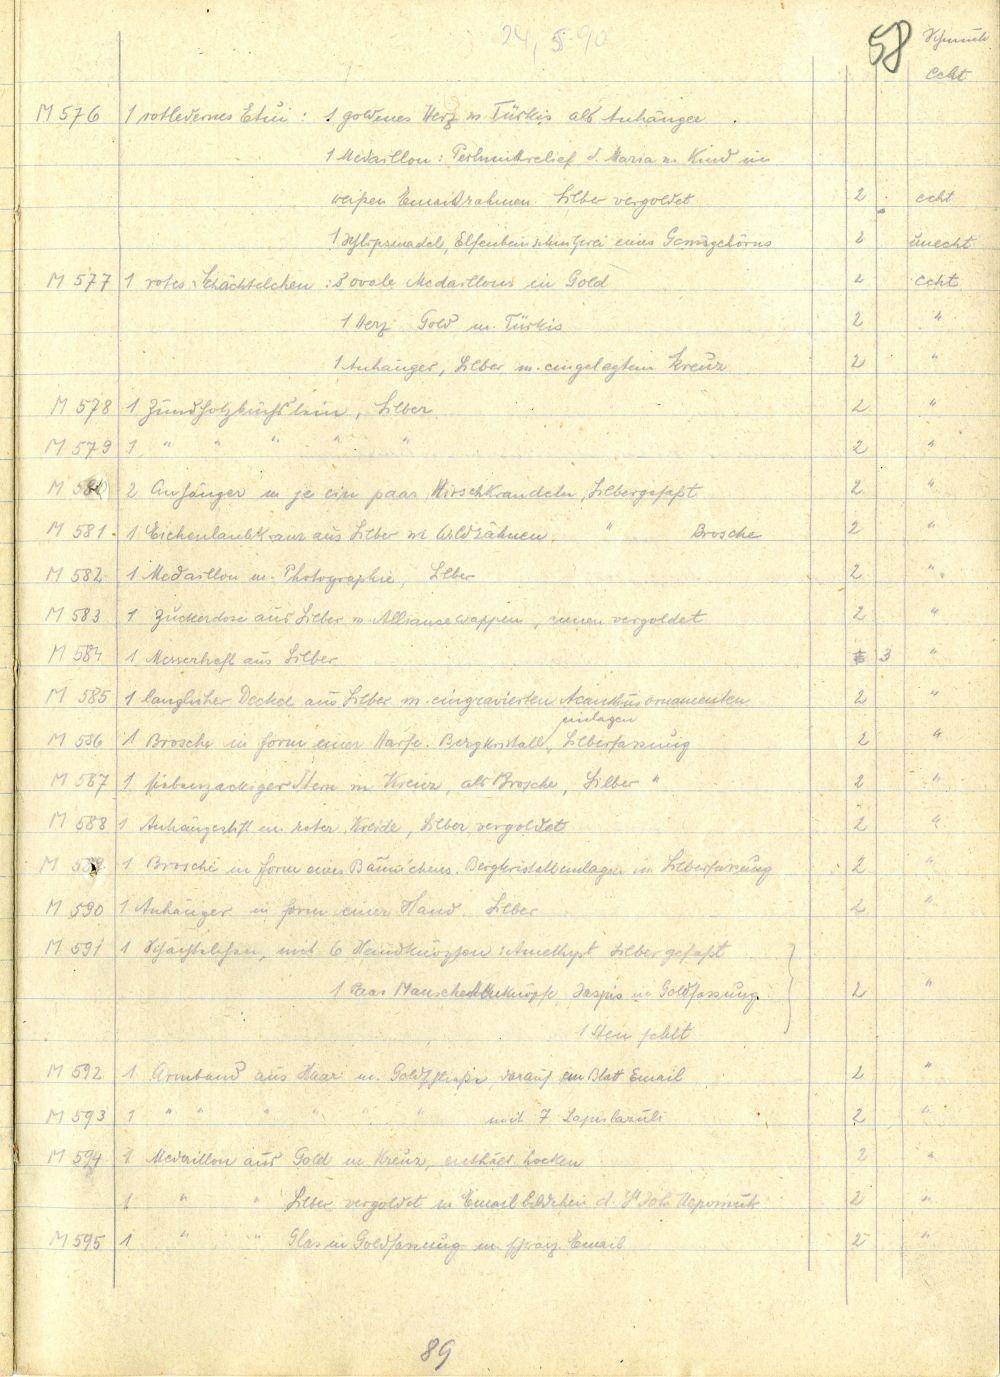 24, 5 90
58 Schmuck
echt
M 576 1 rotledernes Etui : 1 goldenes Herz m Türkis als Anhänger
1 Medaillon : Perlmuttrelief d. Maria m. Kind im
weißen Emailrahmen. Silber vergoldet 2 echt
1 Schlipsnadel, Elfenbeinschnitzerei eines Gemsgehörns 2 unecht
M 577 1 rotes Schächtelchen : 3 ovale Medaillons in Gold 2 echt
1 Herz Gold m. Türkis 2 "
1 Anhänger, Silber m. eingelegtem Kreuz 2 "
M 578 1 Zündholzbüchslein, Silber 2 "
M 579 1 " " " " " 2 "
M 580 2 Anhänger m je ein paar Hirschkrandeln, Silbergefaßt 2 "
M 581 1 Eichenlaubkranz aus Silber m Wildzähnen, " Brosche 2 "
M 582 1 Medaillon m. Photographie, Silber 2 "
M 583 1 Zuckerdose aus Silber m. Alliancewappen, innen vergoldet 2 "
M 584 1 Messerheft aus Silber 3 "
M 585 1 länglicher Deckel aus Silber m. eingravierten Acanthusornamenten 2 "
einlagen
M 586 1 Brosche in form einer Harfe. Bergkristall, Silberfassung 2 "
M 587 1 siebenzackiger Stern m Kreuz, als Brosche, Silber " 2 "
M 588 1 Anhängestift m. roter Kreide, Silber vergoldet 2 "
M 589 1 Brosche in form eines Bäumchens. Bergkristalleinlagen in Silberfassung 2 "
M 590 1 Anhänger in form einer Hand. Silber 2 "
M 591 1 Schächtelchen, mit 6 Hemdknöpfen : Amethyst Silbergefaßt
1 Paar Manschettenknöpfe, Jaspis in Goldfassung 2 "
1 Stein fehlt
M 592 1 Armband aus Haar m. Goldschließe darauf ein Blatt Email 2 "
M 593 1 " " " " " " mit 7 Lapislazuli 2 "
M 594 1 Medaillon aus Gold m Kreuz, enthält. Locken 2 "
1 " " Silber vergoldet m Emailbildchen d. St Joh. Nepomuk 2 "
M 595 1 " " Glas in Goldfassung m. schwarz. Email 2 "
89